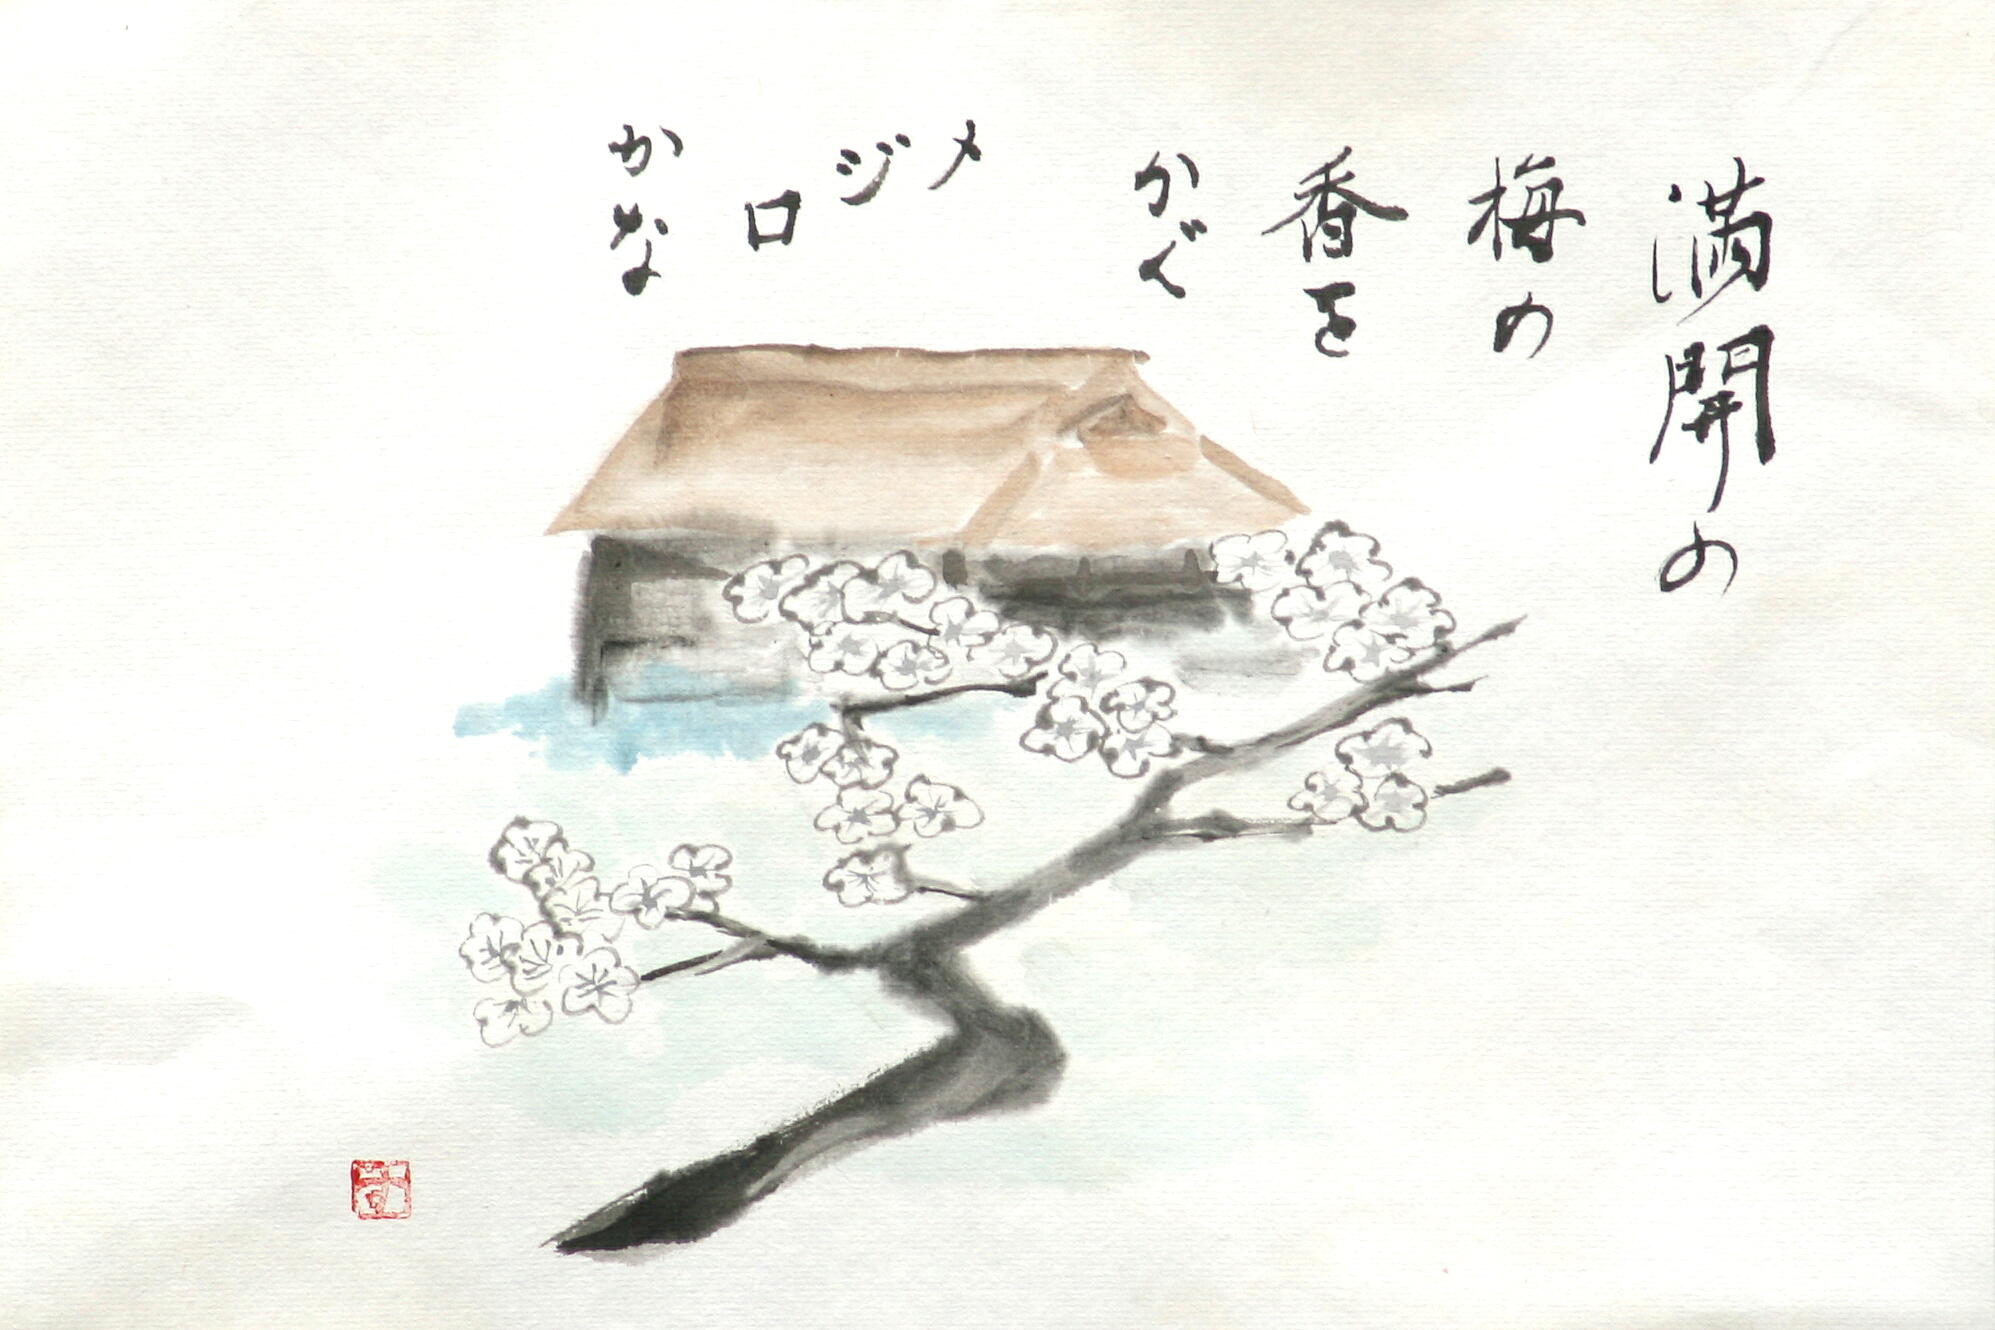 満開の
梅の
香を
かぐ
メジロ
かな